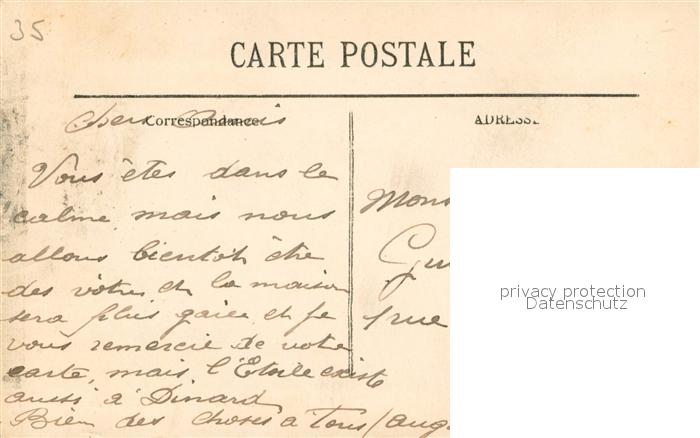 35
CARTE POSTALE
Correspondance
ADRESSE
Chers Amis
Vous êtes dans le
calme, mais nous
allons bientôt être
des vôtres et la maison
sera plus gaiee et je
vous remercie de votre
carte, mais l'Etoile existe
aussi à Dinard
Bien des choses à Tous (Aug.
Mons
Gu
rue
privacy protection
Datenschutz